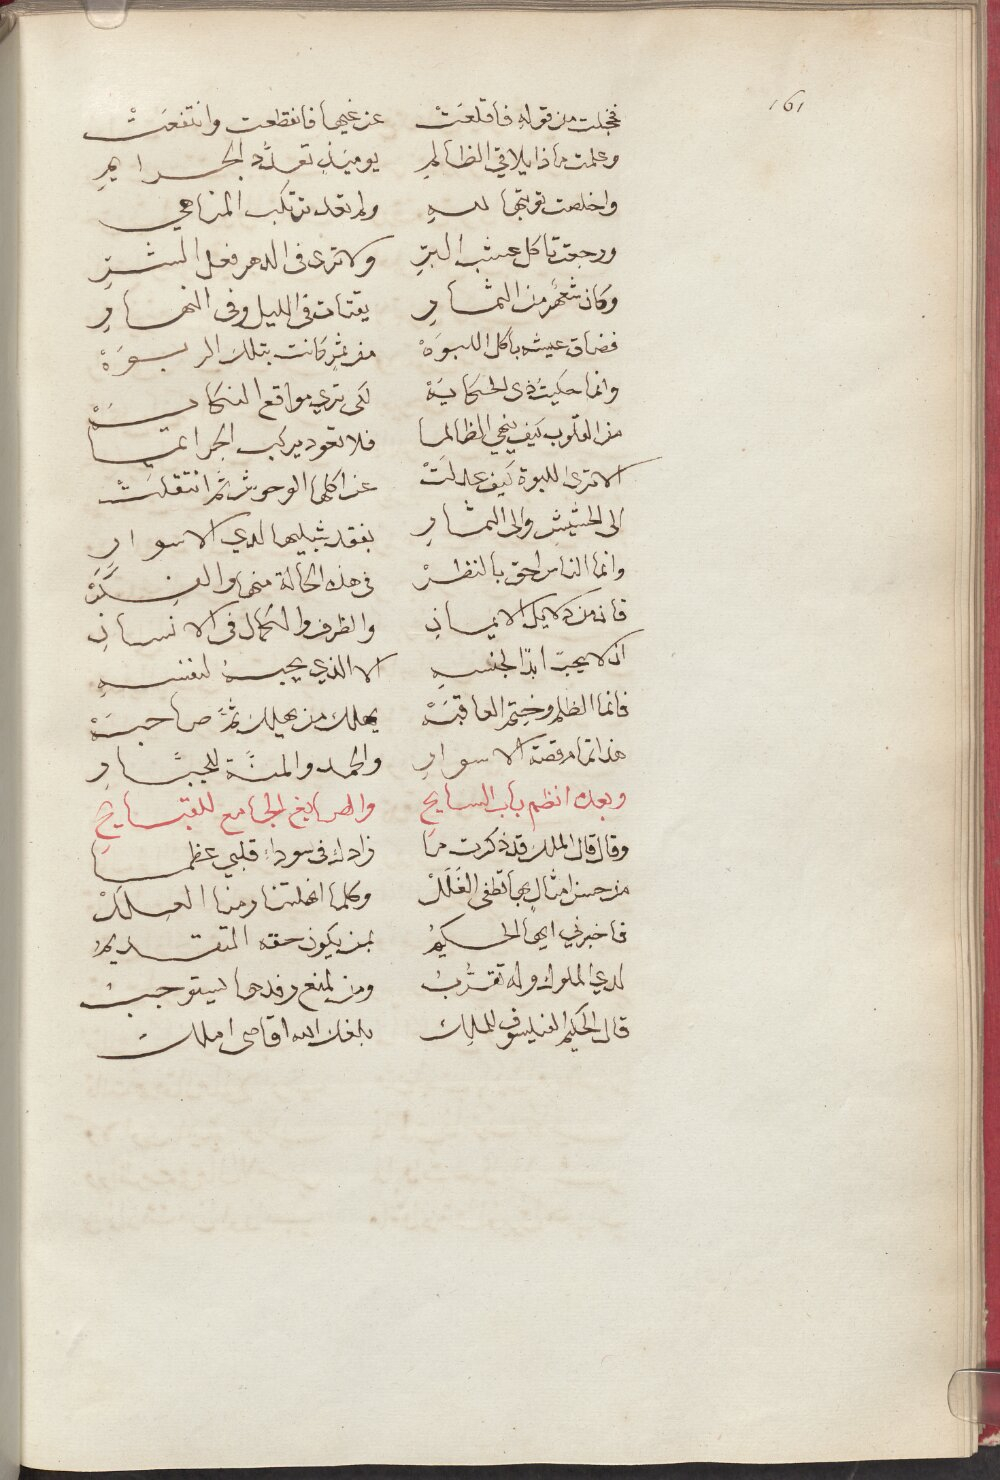 161
فخجلت من قوله فاقلعت عن غيها فانقطعت وانتفعت
وعلمت ماذا يلاقي الظالم يوميذ تعدد الجرايم
واخلصت توبتها لله ولم تعد ترتكب المناهي
ورجعت تاكل عشب البر ولا ترى في الدهر فعل الشر
وكان شعهر من الثمار يقتات في الليل وفي النهار
فضاق عيشه باكل اللبوة من ثمر كانت بتلك الربوة
وانما حكيت ذى الحكاية لكى ترى مواقع النكاية
من القلوب كيف ينهي الظالما فلا تعود يركب الجرايما
الا ترى اللبوة كيف عدلت عن اكلها الوحوش ثم انتقلت
الى الحشيش والى الثمار بفقد شبليها لدي الاسوار
وانما الناس احق بالنظر في هذه الحالة منها والفكر
فانه من دلايل الايمان والظرف والكمال في الانسان
ان لا يحب ابدًا لجنسه الا الذي يحبه لنفسه
فانما الظلم وخيم العاقبة يهلك من يهلك ثم صاحبه
هذا تمام قصة الاسوار والحمد والمنة للجبار
وبعده انظم باب السايح والصايغ الجامع للقبايح
وقال قال الملك قد ذكرت ما زادك في سوداء قلبي عظما
من حسن امثال بها تطفى الغلل وكلما انهلتنا رمنا العلل
فاخبرني ايها الحكيم بمن يكون حقه التقديم
لدي الملوك وله تقرب ومن لمنع رفدها يستوجب
قال الحكيم الفيلسوف للملك بلغك الله اقاصى املك